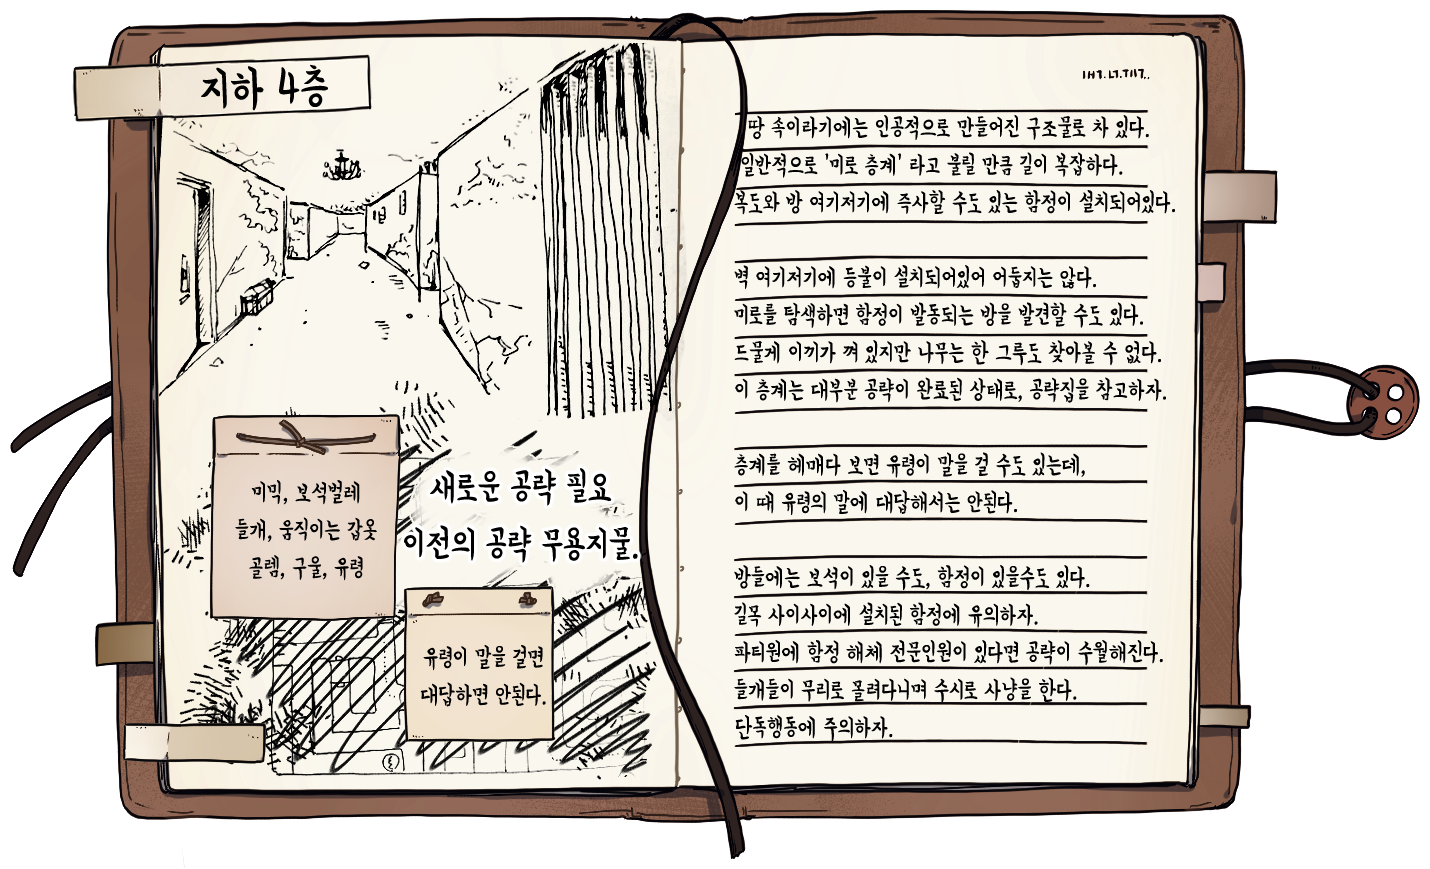 지하 4층
미믹, 보석벌레
들개, 움직이는 갑옷
골렘, 구울, 유령
새로운 공략 필요
이전의 공략 무용지물.
유령이 말을 걸면
대답하면 안된다.
땅 속이라기에는 인공적으로 만들어진 구조물로 차 있다.
일반적으로 '미로 층계' 라고 불릴 만큼 길이 복잡하다.
복도와 방 여기저기에 즉사할 수도 있는 함정이 설치되어있다.
벽 여기저기에 등불이 설치되어있어 어둡지는 않다.
미로를 탐색하면 함정이 발동되는 방을 발견할 수도 있다.
드물게 이끼가 껴 있지만 나무는 한 그루도 찾아볼 수 없다.
이 층계는 대부분 공략이 완료된 상태로, 공략집을 참고하자.
층계를 헤매다 보면 유령이 말을 걸 수도 있는데,
이 때 유령의 말에 대답해서는 안된다.
방들에는 보석이 있을 수도, 함정이 있을수도 있다.
길목 사이사이에 설치된 함정에 유의하자.
파티원에 함정 해체 전문인원이 있다면 공략이 수월해진다.
들개들이 무리로 몰려다니며 수시로 사냥을 한다.
단독행동에 주의하자.